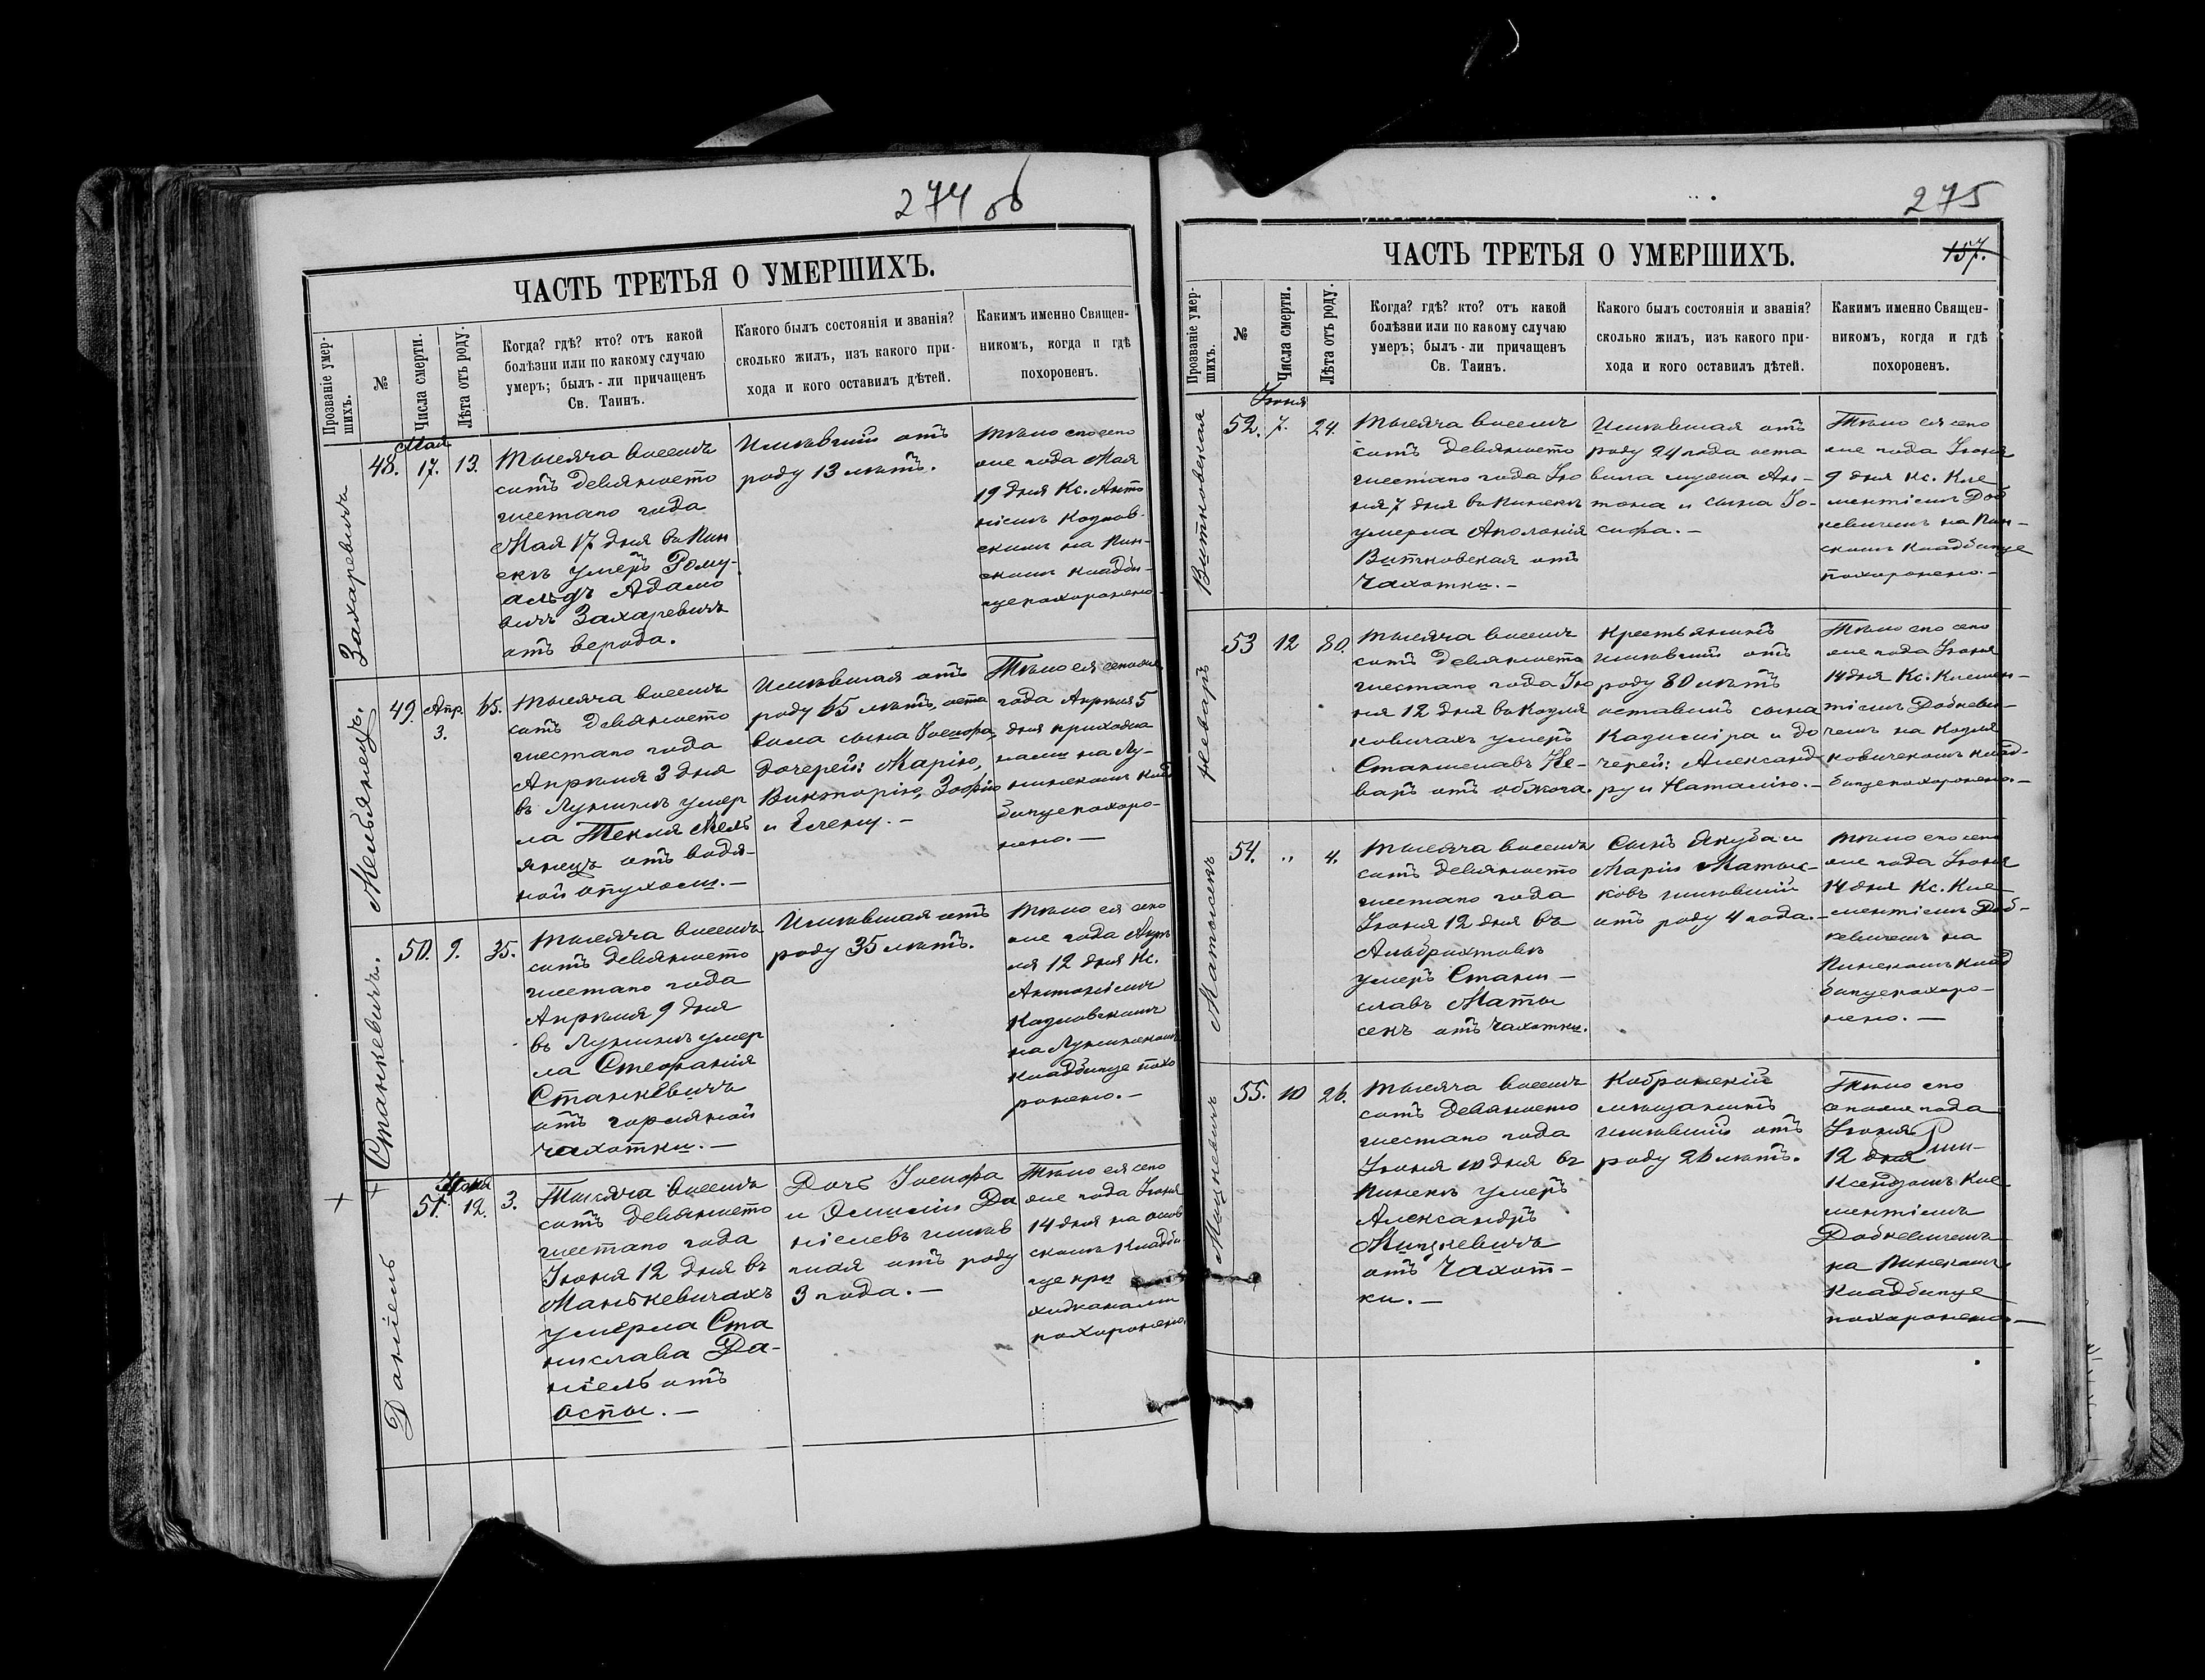 274 об
ЧАСТЬ ТРЕТЬЯ О УМЕРШИХЪ.
Прозваніе умер-
шихъ.
№
Числа смерти.
Лѣта отъ роду.
Когда? гдѣ? кто? отъ какой
болѣзни или по какому случаю
умеръ; былъ-ли причащенъ
Св. Таинъ.
Какого былъ состоянія и званія?
сколько жилъ, изъ какого при-
хода и кого оставилъ дѣтей.
Какимъ именно Священ-
никомъ, когда и гдѣ
похороненъ.
Захаревичъ
48.
Мая
17.
13.
Тысяча восемь
сотъ девяносто
шестаго года
Мая 17 дня въ Пин
скѣ умеръ Рому-
альдъ Адамо
вичъ Захаревичъ
отъ
Имѣвшій отъ
роду 13 лѣтъ.
Тѣло его сего
оне года Мая
19 дня Кс. Анто
ніемъ Козлов-
скимъ на Пин-
скомъ кладби-
ще похоронено-
Мельянецъ.
49.
Апр.
3.
65.
Тысяча восемь
сотъ девяносто
шестаго года
Апрѣля 3 дня
въ Лунинѣ умер
ла Текля Мель
янецъ отъ водя-
ной опухоли.-
Имѣвшая отъ
роду 65 лѣтъ, оста
вила сына Іосифа,
дочерей: Марію,
Викторію, Зофію
и Елену.-
Тѣло ея
года Апрѣля 5
дня
на Лу-
нинскомъ клад
бище похоро-
нено.-
Станкевичъ.
50.
9.
35.
Тысяча восемь
сотъ девяносто
шестаго года
Апрѣля 9 дня
въ Лунинѣ умер
ла Стефанія
Станкевичъ
отъ горляной
чахотки.-
Имѣвшая отъ
роду 35 лѣтъ.
Тѣло ея сего
оне года Апрѣ
ля 12 дня Кс.
Антоніемъ
Козловскимъ
на Лунинскомъ
кладбище похо
ронено.-
+
+
Даніель
51.
Іюня
12.
3.
Тысяча восемь
сотъ девяносто
шестаго года
Іюня 12 дня въ
Манькевичахъ
умерла Ста
нислава Да-
ніель отъ
оспы.-
Дочь Іосифа
и Эмиліи Да
ніелевъ имѣв
шая отъ роду
3 года.-
Тѣло ея сего
оне года Іюня
14 дня на
скомъ кладби
ще при
похоронено.
275
157.
ЧАСТЬ ТРЕТЬЯ О УМЕРШИХЪ.
Прозваніе умер-
шихъ.
№
Числа смерти.
Лѣта отъ роду.
Когда? гдѣ? кто? отъ какой
болѣзни или по какому случаю
умеръ; былъ-ли причащенъ
Св. Таинъ.
Какого былъ состоянія и званія?
сколько жилъ, изъ какого при-
хода и кого оставилъ дѣтей.
Какимъ именно Священ-
никомъ, когда и гдѣ
похороненъ.
Витковская
52.
Іюня
7.
24.
Тысяча восемь
сотъ девяносто
шестаго года Ію
ня 7 дня въ Пинскѣ
умерла Аполонія
Витковская отъ
чахотки.-
Имѣвшая отъ
роду 24 года оста
вила мужа Ан-
тона и сына Іо-
сифа.-
Тѣло ея сего
оне года Іюня
9 дня Кс. Кле
ментіемъ Доб
кевичемъ на Пин-
скомъ кладбище
похоронено.-
Неваръ
53
12
80.
Тысяча восемь
сотъ девяносто
шестаго года Ію
ня 12 дня въ Козля
ковичахъ умеръ
Станиславъ Не-
варъ отъ обжога.
Крестьянинъ
имѣвшій отъ
роду 80 лѣтъ
оставилъ сына
Казиміра и до
черей: Александ
ру и Наталію.-
Тѣло его сего
оне года Іюня
14 дня Кс. Клемен-
тіемъ Добкеви-
чемъ на Козля
ковичскомъ клад-
бище похоронено.-
Матысекъ
54.
"
4.
Тысяча восемь
сотъ девяносто
шестаго года
Іюня 12 дня въ
Альбрихтовѣ
умеръ Стани-
славъ Маты
секъ отъ чахотки.
Сынъ Якуба и
Маріи Матыс-
ковъ имѣвшій
отъ роду 4 года.-
Тѣло его сего
оне года Іюня
14 дня Кс. Кле
ментіемъ Доб-
кевичемъ на
Пинскомъ клад
бище похоро-
нено.-
Мицкевичъ
55.
10
26.
Тысяча восемь
сотъ девяносто
шестаго года
Іюня 10 дня въ
Пинскѣ умеръ
Александръ
Мицкевичъ
отъ чахот-
ки.-
Кобринскій
мѣщанинъ
имѣвшій отъ
роду 26 лѣтъ.
Тѣло его
сего оне года
Іюня
12 дня
Ксендзомъ Кле
ментіемъ
Добкевичемъ
на Пинскомъ
кладбище
похоронено.-